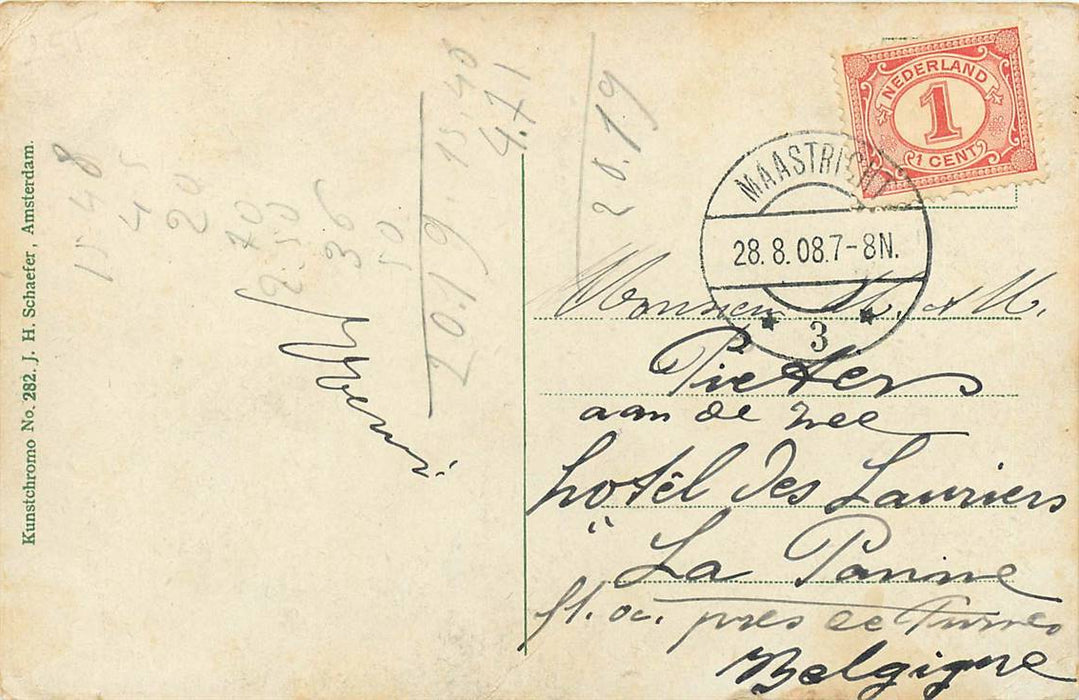 Kunstchromo No. 282. J. H. Schaefer, Amsterdam.
15 48
45
20
70
2.50
36
50
20.19
15.48
4.71
20.19
Henri
NEDERLAND
1
1 CENT
MAASTRICHT
28.8.08.7-8N.
3
Monsieur M. et M.
Pieters
aan de zee
hotêl des Lauriers
La Panne
fl. oc. pres de Furnes
Belgique